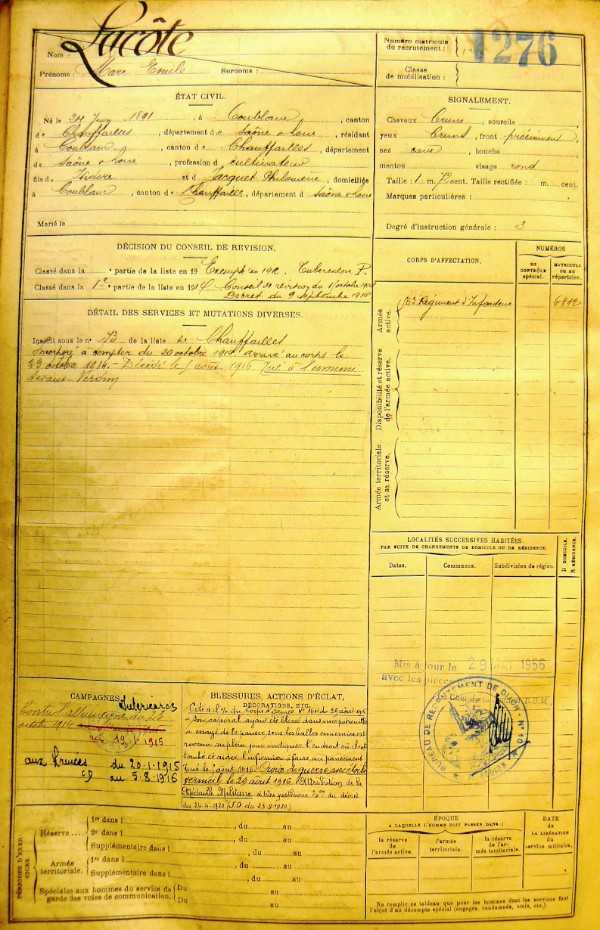 Lacôte
Nom :
Prénoms : Marc Emile Surnoms :
Numéro matricule
du recrutement :
1276
Classe
de mobilisation :
ÉTAT CIVIL.
Né le 1891, à Coublanc, canton
de Chauffailles, département de Saône & Loire, résidant
à Coublanc, canton de Chauffailles, département
de Saône & Loire, profession de cultivateur
fils de Isidore et de Jacquet Philomène, domiciliés
à Coublanc, canton de Chauffailles, département de Saône & Loire
Marié le
SIGNALEMENT.
Cheveux bruns, sourcils
yeux bruns, front proéminent
nez cave, bouche
menton visage rond
Taille : 1 m. 72 cent. Taille rectifiée : m. cent.
Marques particulières :
Degré d'instruction générale : 3
DÉCISION DU CONSEIL DE REVISION.
Classé dans la partie de la liste en 19 Exempté en 1912. P.
Classé dans la 1re partie de la liste en 1914 Conseil de revision du octobre 1914
Décret du 9 septembre 1914
DÉTAIL DES SERVICES ET MUTATIONS DIVERSES.
Inscrit sous le no 73 de la liste de Chauffailles
Incorporé à compter du 20 octobre 1914 arrivé au corps le
23 octobre 1914. Décédé le août 1916. Tué à l'ennemi
devant Verdun
CORPS D'AFFECTATION.
NUMÉROS
AU CONTRÔLE spécial.
MATRICULE OU AU répertoire.
Armée active.
Régiment d'Infanterie
Disponibilité et réserve de l'armée active.
Armée territoriale et sa réserve.
LOCALITÉS SUCCESSIVES HABITÉES
PAR SUITE DE CHANGEMENTS DE DOMICILE OU DE RÉSIDENCE.
Dates. Communes. Subdivision de région. D. DOMICILE. R. RÉSIDENCE.
Mis à jour le 29 1956
avec les pièces
BUREAU DE RECRUTEMENT DE DIJON
CAMPAGNES.
Intérieures
Contre l'Allemagne du 23
octobre 1914
19.1.1915
aux Armées du 20-1-1915
CD au 5.8.1916
BLESSURES, ACTIONS D'ÉCLAT,
DÉCORATIONS, ETC.
Cité à l'O. du Corps d'Armée No 29 août 1916
Son caporal ayant été blessé dans une patrouille
a essayé de le ramener sous les balles ennemies est
revenu en plein jour indiquer l'endroit où il est
tombé et aider l'infirmier à faire un pansement
Tué le août 1916. Croix de guerre avec étoile
vermeil le 29 août 1916. Attribution de la
Médaille Militaire à titre posthume
PÉRIODES D'EXERCICES.
Réserve
1re dans l , du au
2e dans l , du au
Supplémentaire dans l , du au
Armée territoriale.
1re dans l , du au
Supplémentaire dans l , du au
Spéciales aux hommes du service de garde des voies de communication.
Du au
Du au
ÉPOQUE
À LAQUELLE L'HOMME DOIT PASSER DANS :
la réserve de l'armée active.
l'armée territoriale.
la réserve de l'armée territoriale.
DATE
DE LA LIBÉRATION du service militaire.
Ne remplir ce tableau que pour les hommes dont les services font l'objet d'un décompte spécial (engagés, condamnés, omis, etc.).